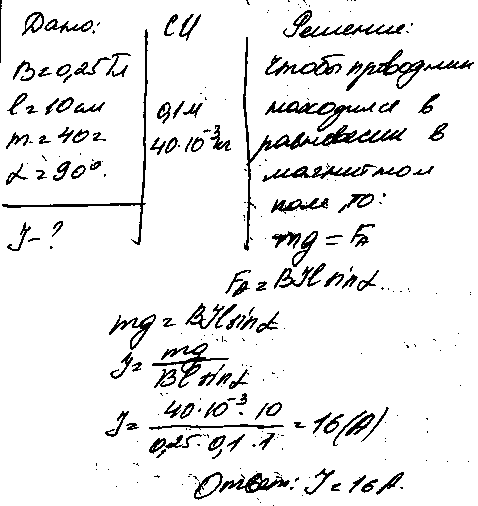 Дано:
B=0,25Тл
l=10см
m=40г
α=90°.
I-?
СИ
0,1м
40·10⁻³кг
Решение:
Чтобы проводник
находился в
равновесии в
магнитном
поле, то:
mg = Fа
Fа = BIl sin α.
mg = BIl sin α
I = mg / Bl sin α
I = 40·10⁻³·10 / 0,25·0,1·1 = 16 (А)
Ответ: I = 16 А.